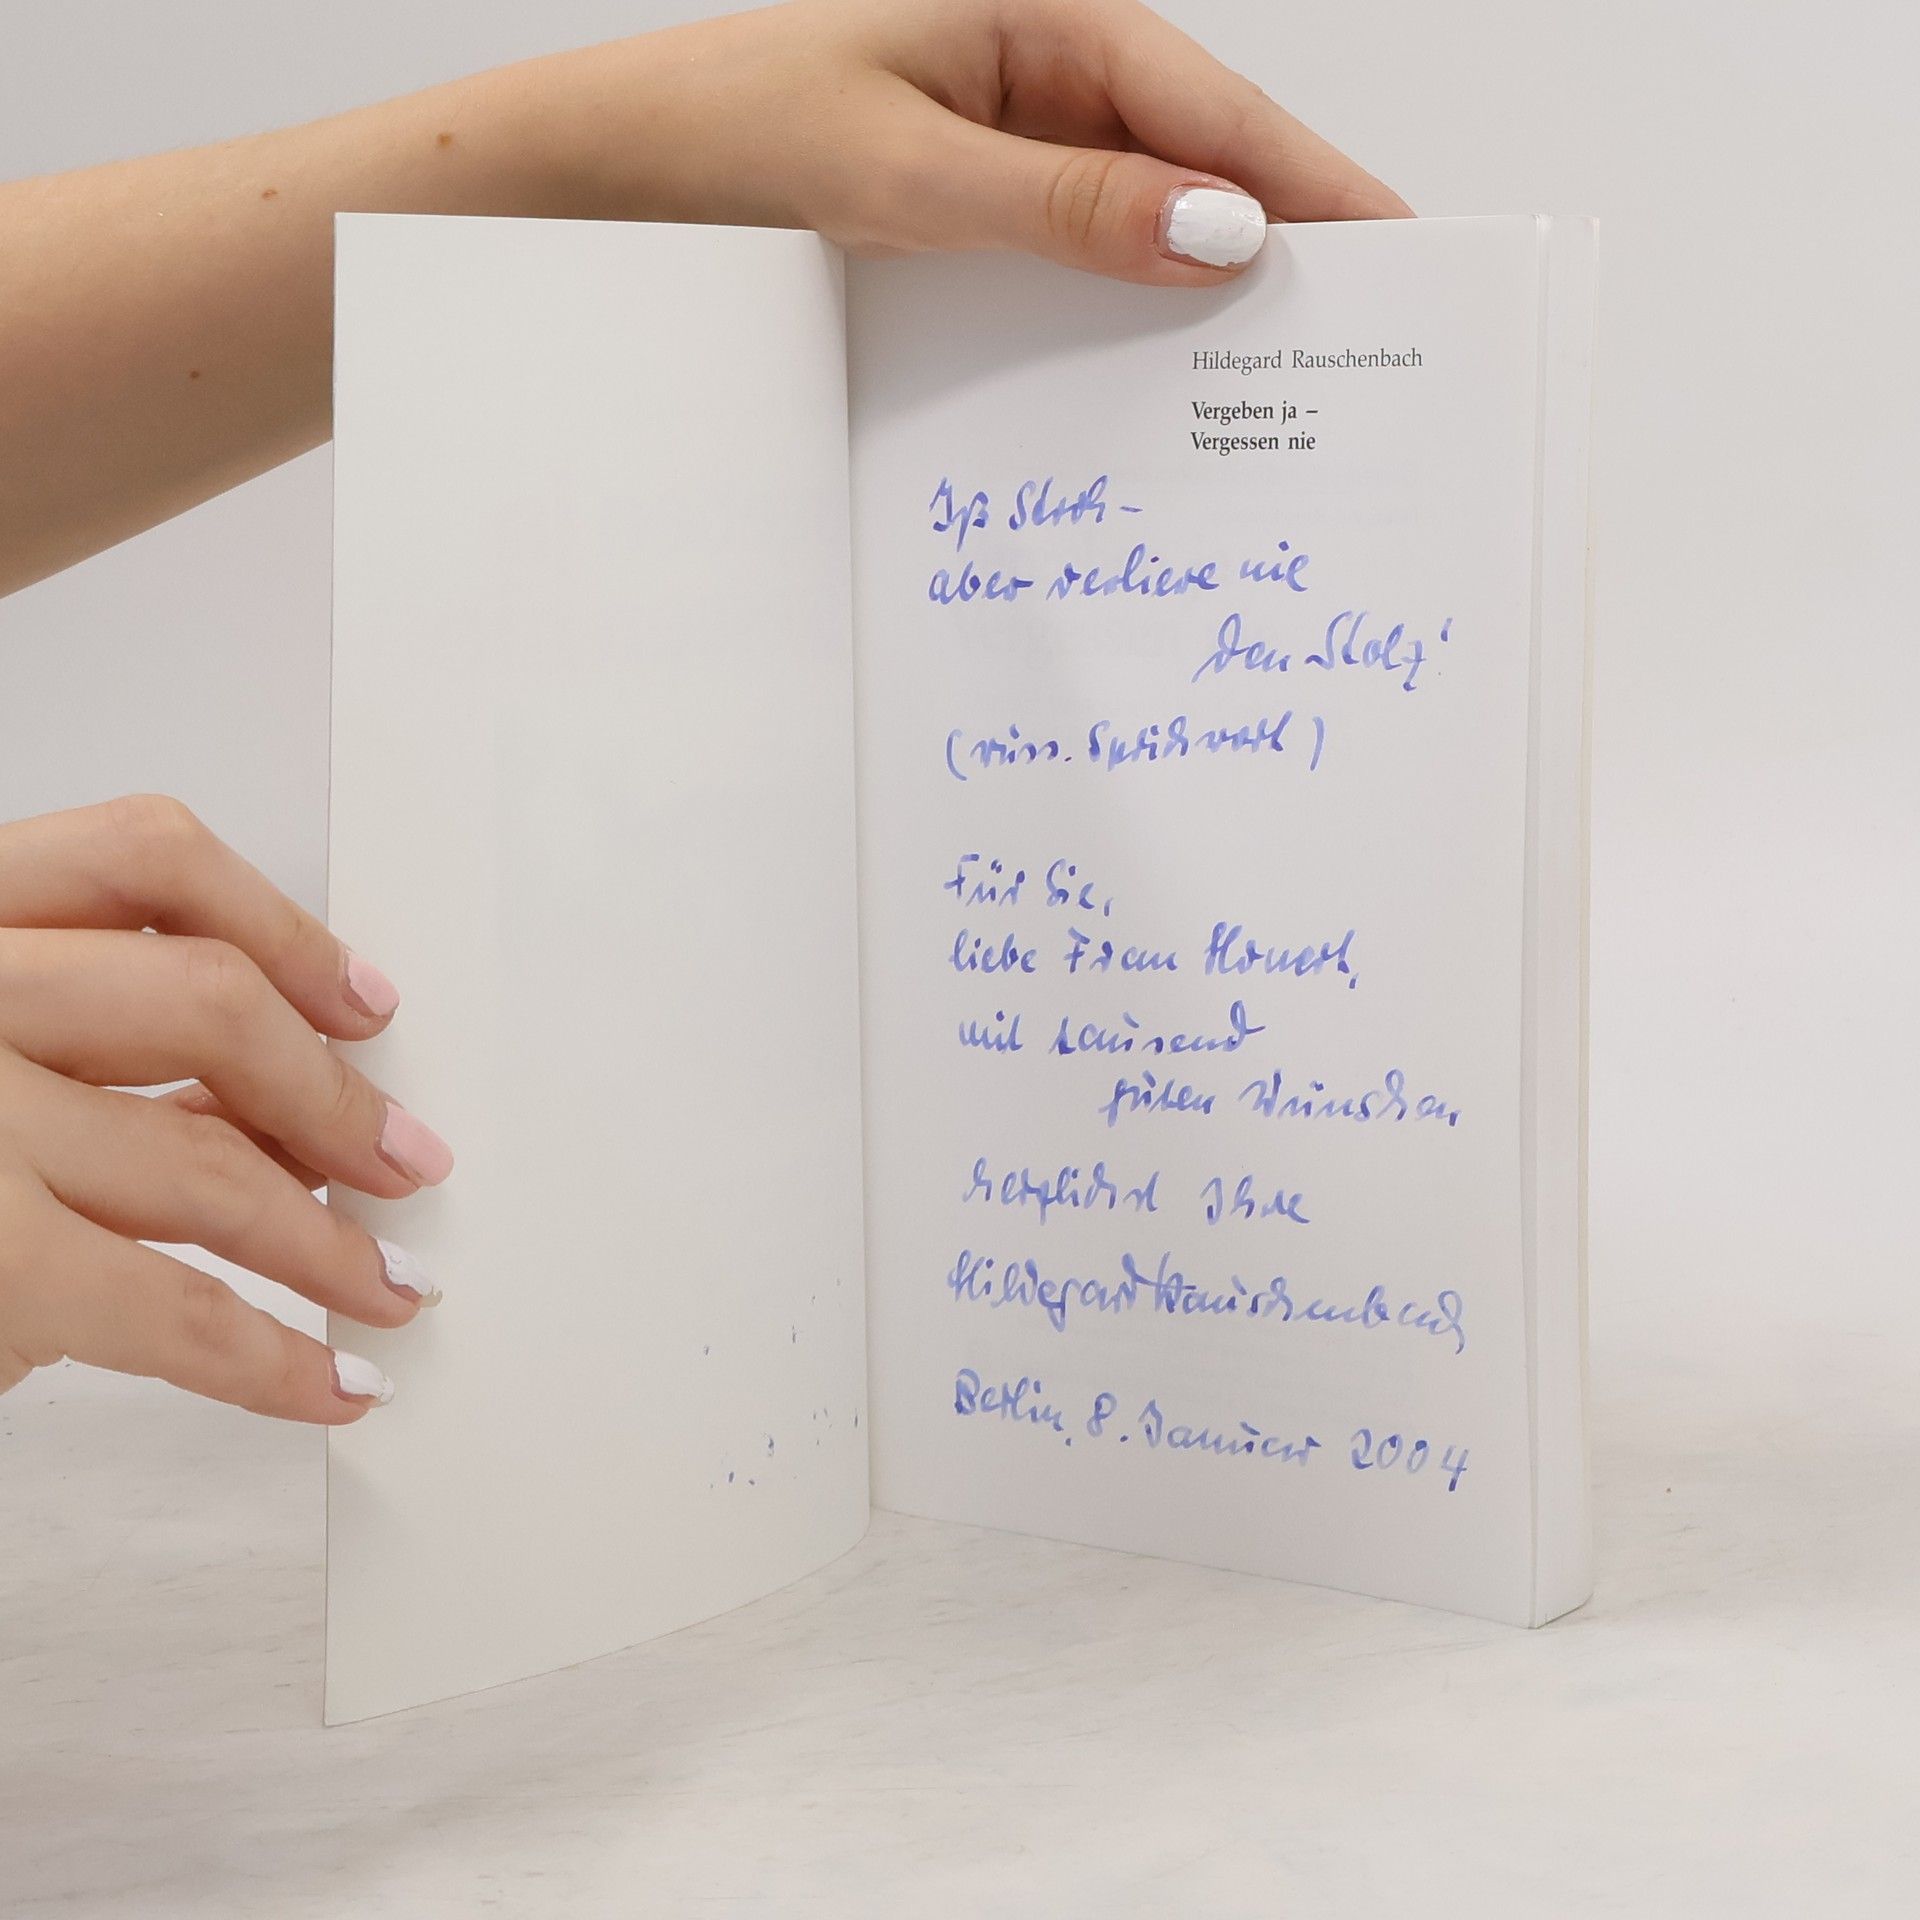 Hildegard Rauschenbach
Vergeben ja –
Vergessen nie
Iß Stroh –
aber verliere nie
den Stolz!
(russ. Sprichwort)
Für Sie,
liebe Frau
mit tausend
guten Wünschen
herzlichst Ihre
Hildegard Rauschenbach
Berlin, 8. Januar 2004